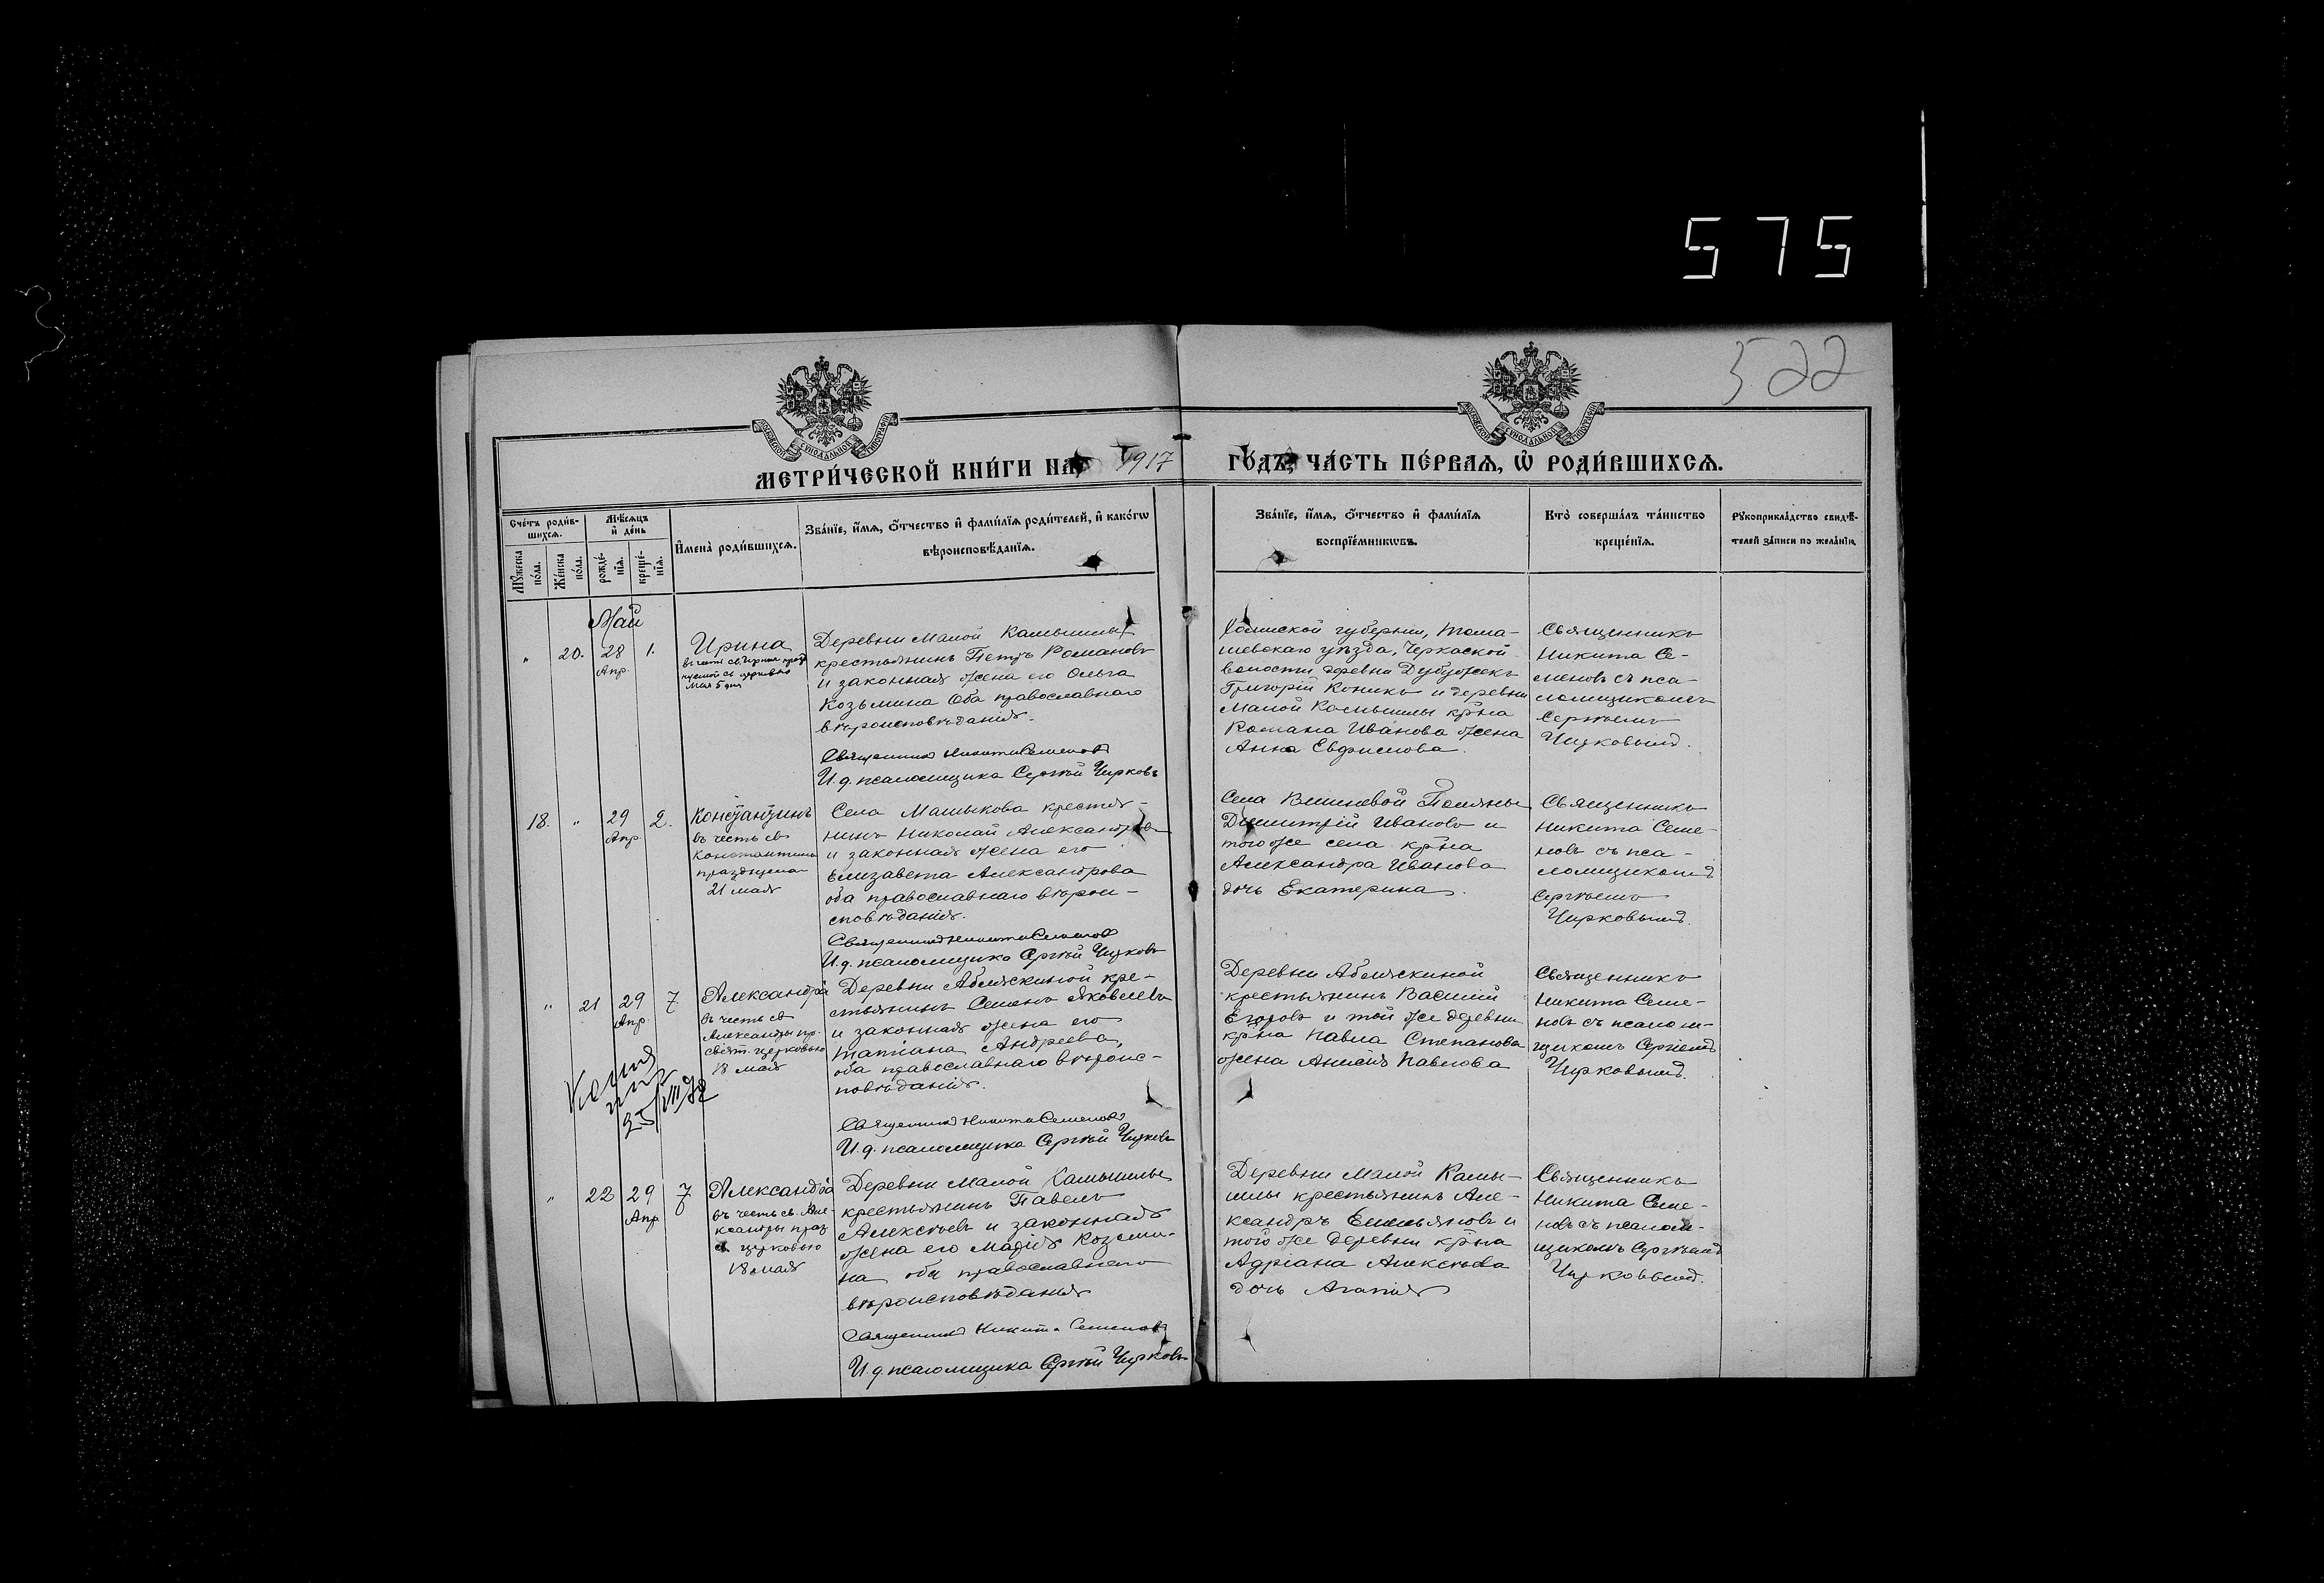 575
522
МЕТРИ́ЧЕСКОЙ КНИ́ГИ НА 1917 ГО́ДЪ, ЧА́СТЬ ПЕ́РВАЯ, Ѡ҆ РОДИ́ВШИХСЯ.
Сче́тъ роди́вшихся.
Му́жеска по́ла.
Же́нска по́ла.
Мѣ́сяцъ и҆ де́нь
рожде́нїя.
креще́нїя.
И҆мена̀ роди́вшихся.
Зва́нїе, и҆́мя, ѻ҆́тчество и҆ фами́лїя роди́телей, и҆ како́гѡ
вѣроисповѣ́данїя.
Зва́нїе, и҆́мя, ѻ҆́тчество и҆ фами́лїя
воспрїе́мникѡвъ.
Кто̀ соверша́лъ та́инство
креще́нїя.
Рꙋкоприкла́дство свидѣ́-
телей за́писи по жела́нїю.
Май
" 20. 28 Апр. 1.
Ирина
въ честь св. Ирины
мая 5 дня
Деревни Малой Камышлы
крестьянинъ Петръ Романовъ
и законная жена его Ольга
Козьмина оба православнаго
вѣроисповѣданія.
Священникъ Никита Семеновъ
И.д. псаломщика Сергѣй Чирковъ
губерніи, Тома-
шевскаго уѣзда, Черкаской
волости деревни
Григорій Коникъ и деревни
Малой Камышлы кр̃на
Романа Иванова жена
Анна Ефимова.
Священникъ
Никита Се-
меновъ съ пса-
ломщикомъ
Сергѣемъ
Чирковымъ.
18. " 29 Апр. 2.
Константинъ
въ честь св
Константина
21 мая
Села Машыкова крестья-
нинъ Николай Александровъ
и законная жена его
Елизавета Александрова
оба православнаго вѣрои-
сповѣданія.
Священникъ Никита Семеновъ
И.д. псаломщика Сергѣй Чирковъ
Села Вишневой Поляны
Димитрій Ивановъ и
того же села кр̃на
Александра Иванова
дочь Екатерина.
Священникъ
Никита Семе-
новъ съ пса-
ломщикомъ
Сергѣемъ
Чирковымъ.
" 21 29 Апр. 7
Александра
въ честь св
Александры пр.
свят. церковью
18 мая
Деревни Аблязкиной кре-
стьянинъ Семенъ Яковлевъ
и законная жена его
Татіана Андреева,
оба православнаго вѣроис-
повѣданія.
Священникъ Никита Семеновъ
И.д. псаломщика Сергѣй Чирковъ
Деревни Аблязкиной
крестьянинъ Василій
Егоровъ и той же деревни
кр̃на Павла Степанова
жена Павлова
Священникъ
Никита Семе-
новъ съ псалом-
щикомъ Сергіемъ
Чирковымъ.
" 22 29 Апр 7
Александра
въ честь св. Але-
ксандры праз
св церковью
18 мая
Деревни Малой Камышлы
крестьянинъ Павелъ
Алексѣевъ и законная
жена его Марія Козьми-
на оба православнаго
вѣроисповѣданія
Священникъ Никита Семеновъ
И.д. псаломщика Сергѣй Чирковъ
Деревни Малой Камы-
шлы крестьянинъ Але-
ксандръ Емельяновъ и
того же деревни кр̃на
Адріана Алексѣева
дочь Агапія
Священникъ
Никита Семе-
новъ съ псалом-
щикомъ Сергѣемъ
Чирковымъ.